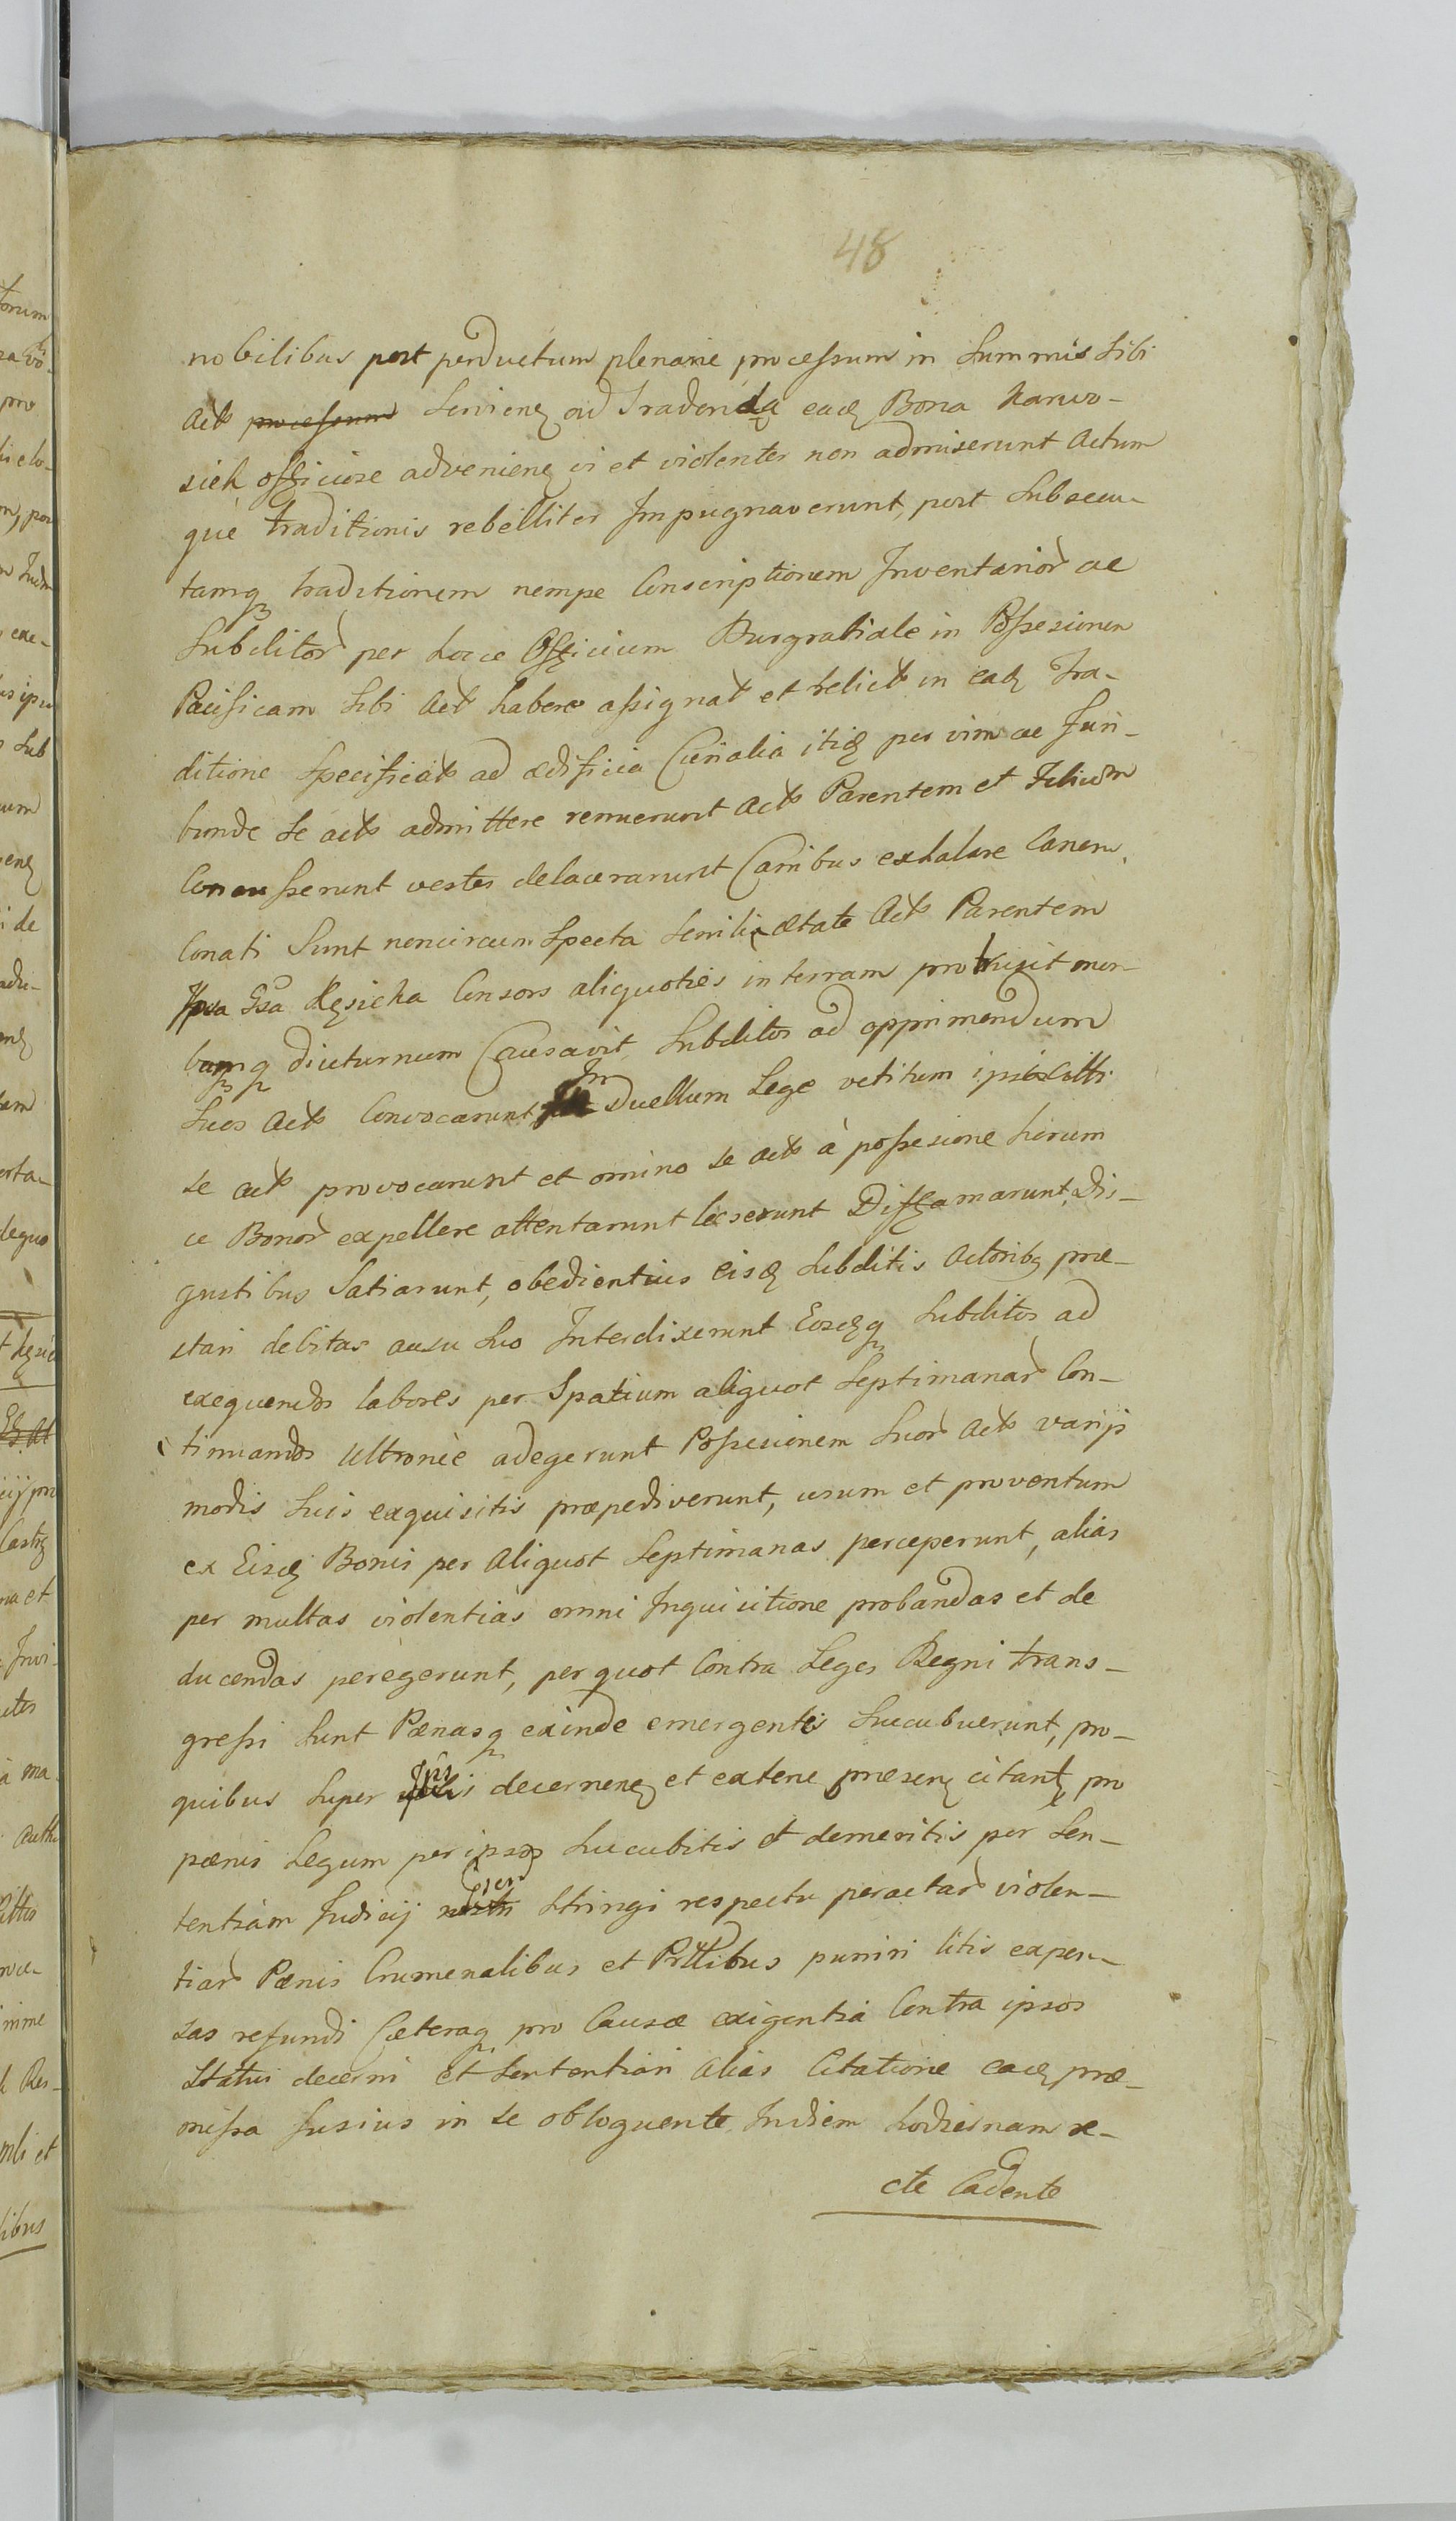 48
nobilibus post perductum plenarie processum in Summis sibi
Act. processum Serviens ad Tradenda eadem Bona Karwo-
siek officiose adveniens vi et violenter non admiserunt Actum
que traditionis rebelliter Impugnaverunt, post Subsecu-
tamq traditionem nempe Conscriptionem Inventarior ac
Subditor per hocce Officium Burgrabiale in Possesionem
Pacificam Sibi Act habere assignat et relict in ead Tra-
ditione Specificat ad ædificia Curialia itid per vim ac Furi-
bunde Se act admittere renuerunt Act Parentem et Filium
Concusserunt vestes delacerarunt Canibus exhalare Canem
Conati Sunt nencircum Specta Senili ætate Act Parentem
Ipsa Gsa Kęsicka Consors aliquoties in terram protrusit mor-
bumq diuturnum Causavit, Subditos ad opprimendum
Suos Act Convocarunt, In Duellum Lege vetitum ipsi Citti
se act provocarunt et omino se act à possesione horum
ce Bonor expellere attentarunt læserunt Diffamarunt, Dis-
gustibus Satiarunt, obedientias eisd Subditis Actoribq præ-
stari debitas ausu Suo Interdixerunt Eosdq Subditos ad
exequendos labores per Spatium aliquot Septimanar Con-
tinuandos Ultronie adegerunt Possesionem Suor Act varijs
modis Suis exquisitis præpediverunt, usum et proventum
ex Eisd Bonis per Aliquot Septimanas perceperunt, alias
per multas violentias omni Inquisitione probandas et de
ducendas peregerunt, per quot Contra Leges Regni trans-
gressi Sunt Pænasq exinde emergentes Succubuerunt, pro-
quibus Super Ipsis decernend et extene præsens citant pro
pænis Legum per ipsos Sucubitis et demeritis per Sen-
tentiam Judicij nostri Stringi respectu peractar violen-
tiar Pænis Crumenalibus et Prttibus puniri litis expen-
sas refundi Cæteraq pro Causæ exigentia Contra ipsos
Statui decerni et Sententiari Alias Citatione eadem præ-
missa fusius in se obloquente Indiem hodiernam re-
cte Cadente